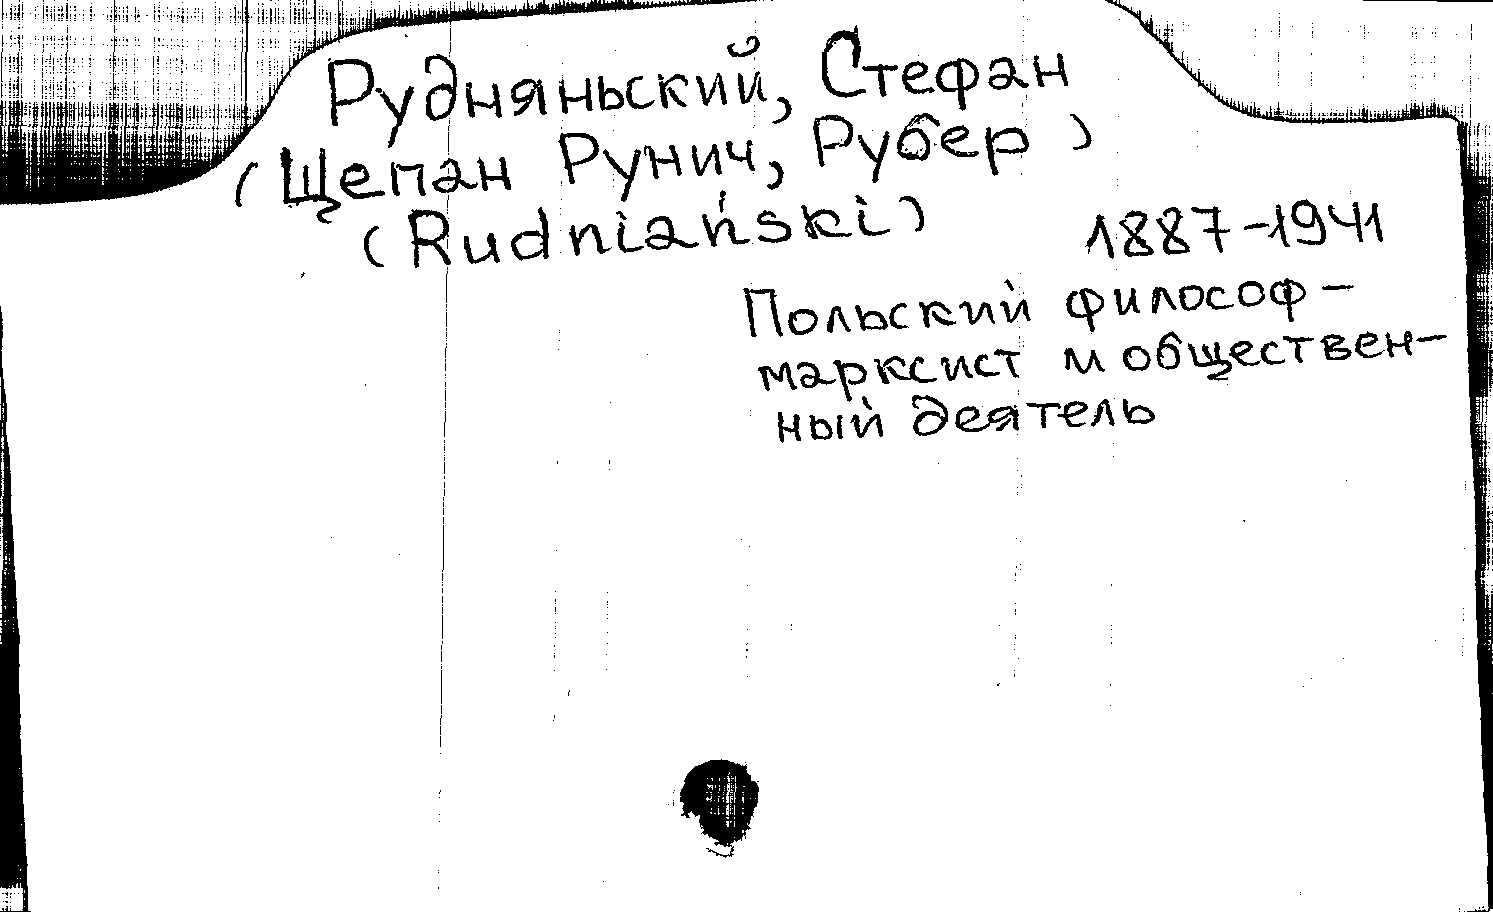 Рудняньский, Стефан
(Щепан Рунич, Рубер)
(Rudniański)
1887-1941
Польский философ-
марксист и обществен-
ный деятель